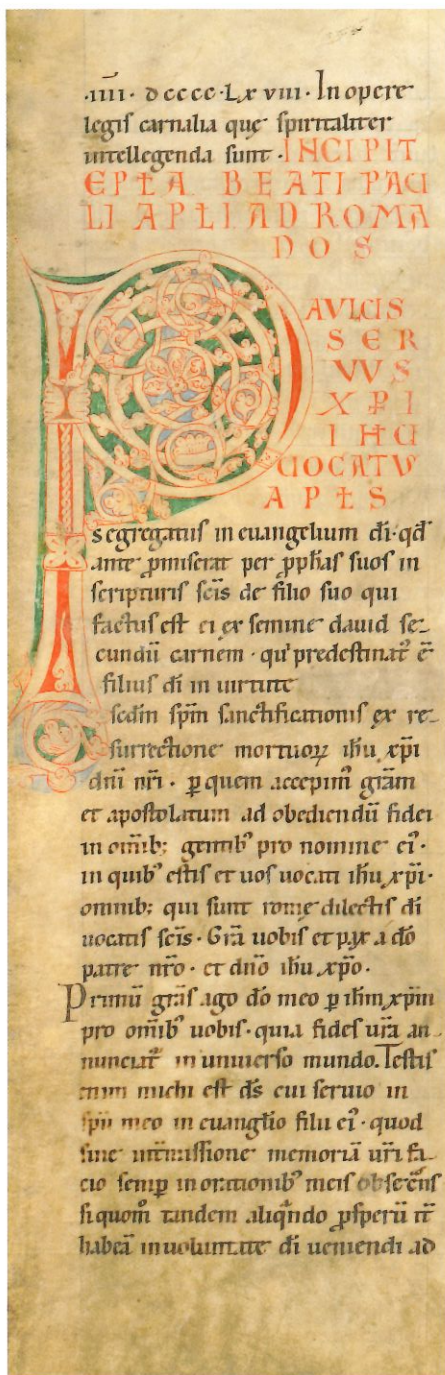 ·iiii· dcccc·Lx viii· In opere
legis carnalia que spiritaliter
intellegenda sunt · INCIPIT
EPŁA BEATI PAU
LI APŁI AD ROMA
NOS
PAVLUS
SER
VVS
XPI
IHU
UOCATV
APŁS
segregatus in euangelium dī· qđ
ante ꝓmiserat per ꝓphas suos in
scripturis scīs de filio suo qui
factus est ei ex semine dauid se
cundū carnem · qui predestinat᷑ ē
filius dī in uirtute
sedm̄ spm̄ sanctificationis ex re
surrectione mortuoꝝ ihū xp̄i
dn̄i nr̄i · ꝑ quem accepim᷒ grām
et apostolatum ad obediendū fidei
in om̄ib; gentib᷒ pro nomine ei᷒·
in quib᷒ estis et uos uocati ihū xp̄i·
omnib; qui sunt rome dilectis dī
uocatis scīs · Grā uobis et pax a dō
patre nr̄o · et dn̄o ihū xp̄o ·
Primū grās ago dō meo ꝑ ihm̄ xp̄m
pro om̄ib᷒ uobis · quia fides ur̄a an
nunciat᷑ in uniuerso mundo. Testis
enim michi est ds̄ cui seruio in
spū meo in euanglio filii ei᷒ · quod
sine int̄missione memoriā ur̄i fa
cio semꝑ in orationib᷒ meis obsecr̄ns
si quom̄ tandem aliqn̄do ꝓsperū it᷑
habeā in uoluntate dī ueniendi ad